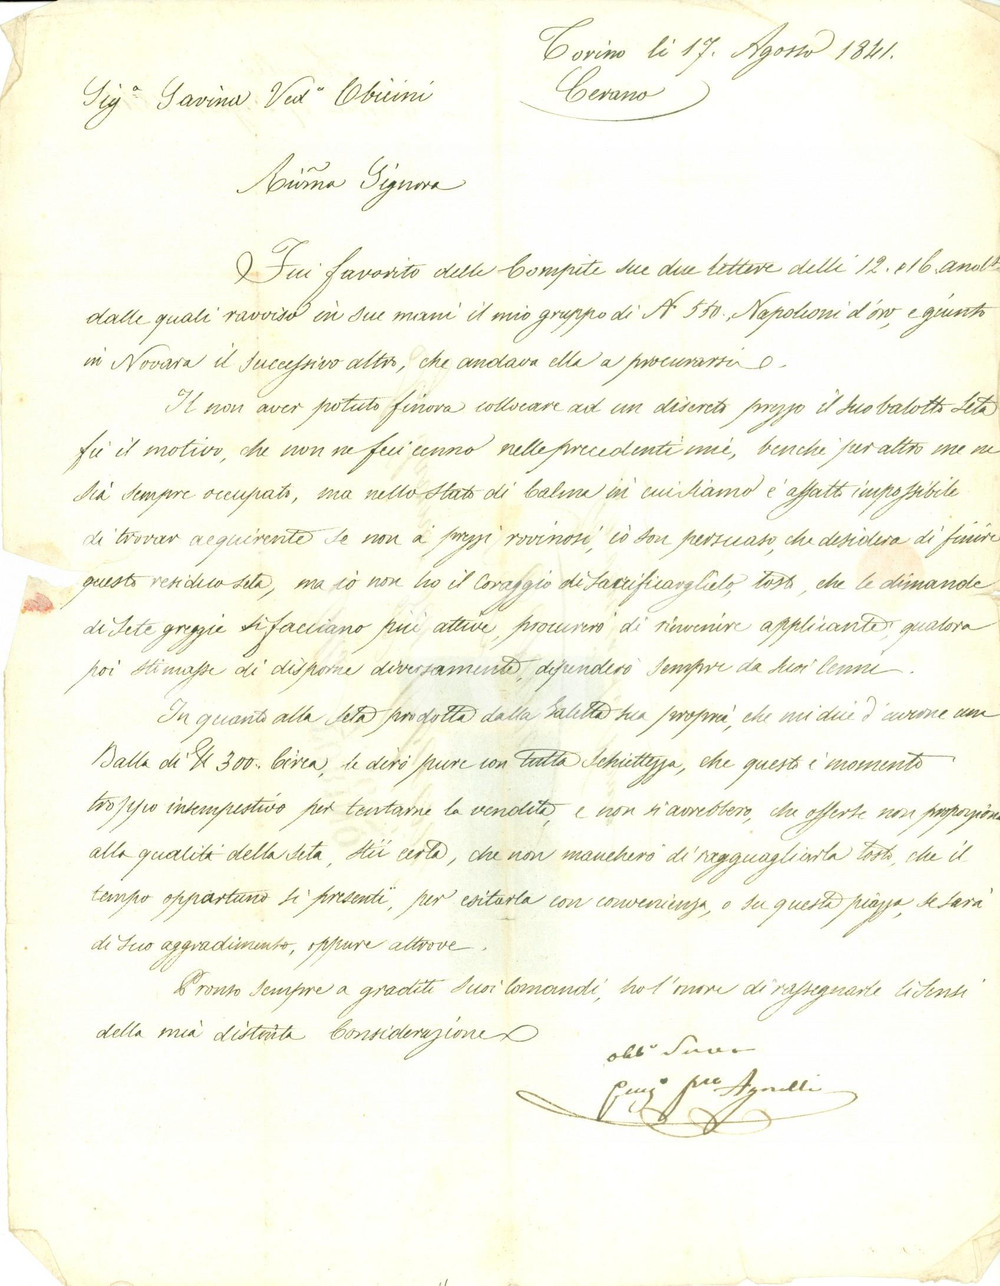 Torino li 17. Agosto 1841.
Sigᵃ Savina Vedᵃ Obicini
Cerano
Riv̄ma Signora
Fui favorito delle Compite sue due lettere delli 12. e 16. and.te
dalle quali ravviso in sue mani il mio gruppo di N° 550, Napolioni d'òro, e giunto
in Novara il successivo altro, che andava ella a procurarsi.
Il non aver potuto finora collocare ad un discreto prezzo il suo balotto Seta
fù il motivo, che non ne feci cenno nelle precedenti mie, benche per altro me ne
sia sempre occupato, ma nello stato di Calma in cui siamo è affatto impossibile
di trovar acquirente se non à prezzi rovinosi, io son persuaso, che desidera di finire
questo residuo seta, ma io non ho il Coraggio di sacrificarglielo, tosto, che le dimande
di Sete greggie si facciano più attive, procurerò di rinvenire applicante, qualora
poi stimasse di disporne diversamente, dipenderò sempre da suoi Cenni.
In quanto alla seta prodotta dalla Galetta sua propria, che mi dice d'averne una
Balla di ℔ 300. Circa, le dirò pure con tutta Schiettezza, che questo è momento
troppo intempestivo per tentarne la vendita, e non si avrebbero, che offerte non proporziona
alla qualità della Seta, stii certa, che non mancherò di ragguagliarla tosto, che il
tempo opportuno si presenti, per esitarla con convenienza, o su questa piazza, se sarà
di suo aggradimento, oppure altrove.
Pronto sempre a graditi suoi Comandi, ho l'onore di rassegnarle li Sensi
della mia distinta Considerazione
obb.º Serv.